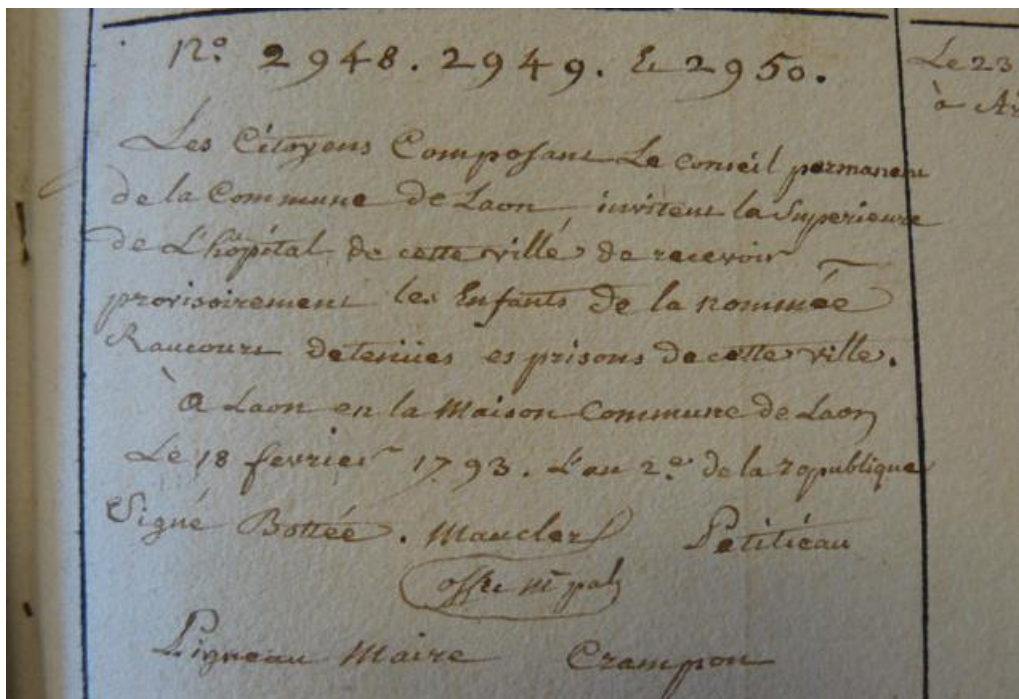 N.o 2948. 2949. & 2950.
Le 23
à
Les Citoyens Composant Le Conseil permanent
de la Commune de Laon, invitent la Superieure
de L'hôpital de cette ville, de recevoir
provisoirement les Enfants de la nommée
Raucourt detenües es prisons de cette ville.
à Laon en la Maison Commune de Laon
Le 18 fevrier 1793. L'an 2.e de la republique
Signé Bottée. Maucler Petitieau
offer m pal
Pigneau Maire Crampon